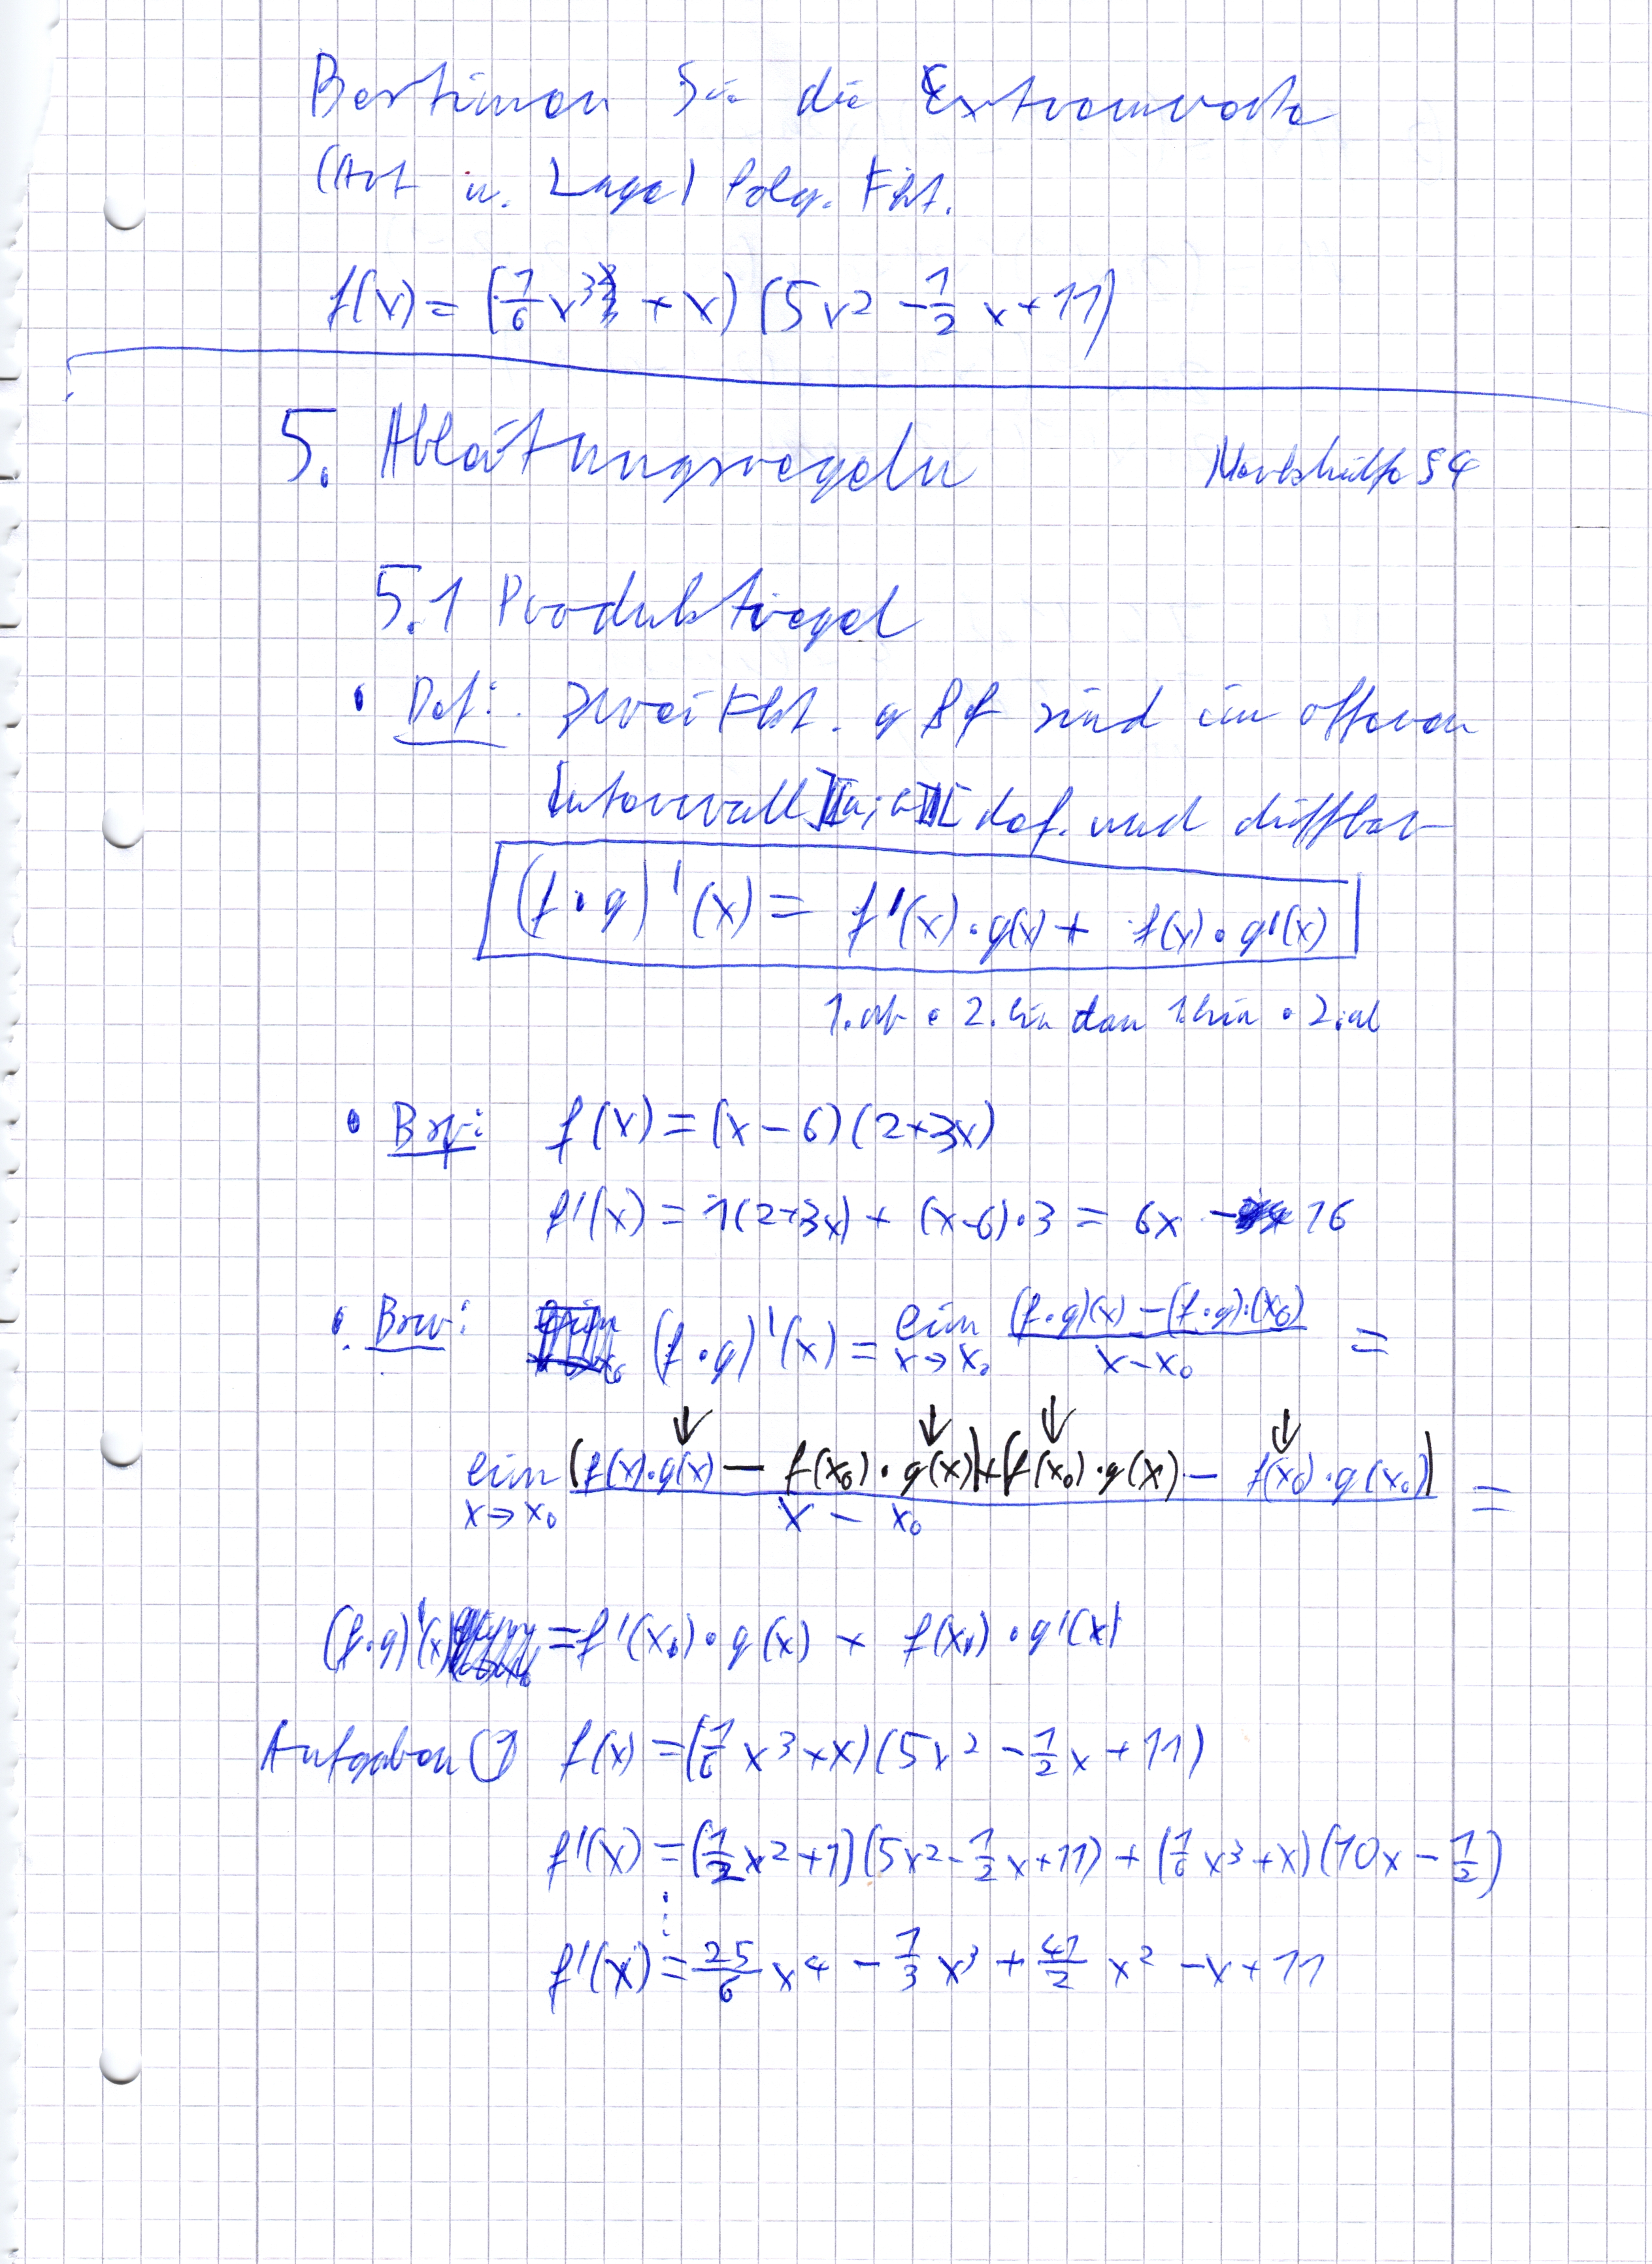 Bestimmen Sie die Extremwerte
(Art u. Lage) folg. Fkt.
f(x) = (1/6 x³ + x) (5x² - 1/2 x + 11)
5. Ableitungsregeln Merkhilfe S4
5.1 Produktregel
• Def: Zwei Fkt. g & f sind im offenen
Intervall ]a;b[ def. und diffbar
(f • g)'(x) = f'(x) • g(x) + f(x) • g'(x)
1. ab • 2. hin dan 1. hin • 2. ab
• Bsp: f(x) = (x - 6)(2+3x)
f'(x) = 1(2+3x) + (x-6)•3 = 6x - 16
• Bew: (f • g)'(x) = lim x→x₀ ((f•g)(x) - (f•g)(x₀)) / (x - x₀) =
↓ ↓ ↓ ↓
lim x→x₀ ((f(x)•g(x) - f(x₀)•g(x)) + (f(x₀)•g(x) - f(x₀)•g(x₀))) / (x - x₀) =
(f•g)'(x) = f'(x₀) • g(x) + f(x₀) • g'(x)
Aufgaben ① f(x) = (1/6 x³ + x)(5x² - 1/2 x + 11)
f'(x) = (1/2 x² + 1)(5x² - 1/2 x + 11) + (1/6 x³ + x)(10x - 1/2)
⋮
f'(x) = 25/6 x⁴ - 1/3 x³ + 41/2 x² - x + 11